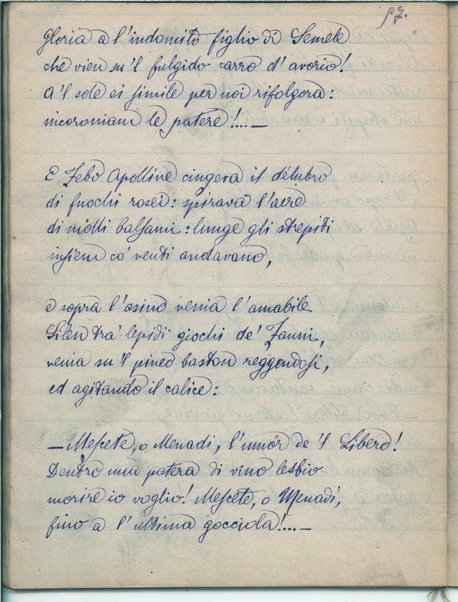 97.
Gloria a l'indomito figlio di Semele
che vien su 'l fulgido carro d'avorio!
A 'l sole ei simile per noi rifolgora:
incoroniam le patere!...._

E Febo Apolline cingeva il delubro
di fuochi rosei: spirava l'aere
di molli balsami: lunge gli strepiti
insiem co' venti andavano,

e sopra l'asino venia l'amabile
Silen tra' lepidi giochi de' Fauni,
venia su 'l pineo baston reggendosi,
ed agitando il calice:

_Mescete, o Menadi, l'umor de 'l Libero!
Dentro una patera di vino lesbio
morire io voglio! Mescete, o Menadi,
fino a l'ultima gocciola!...._